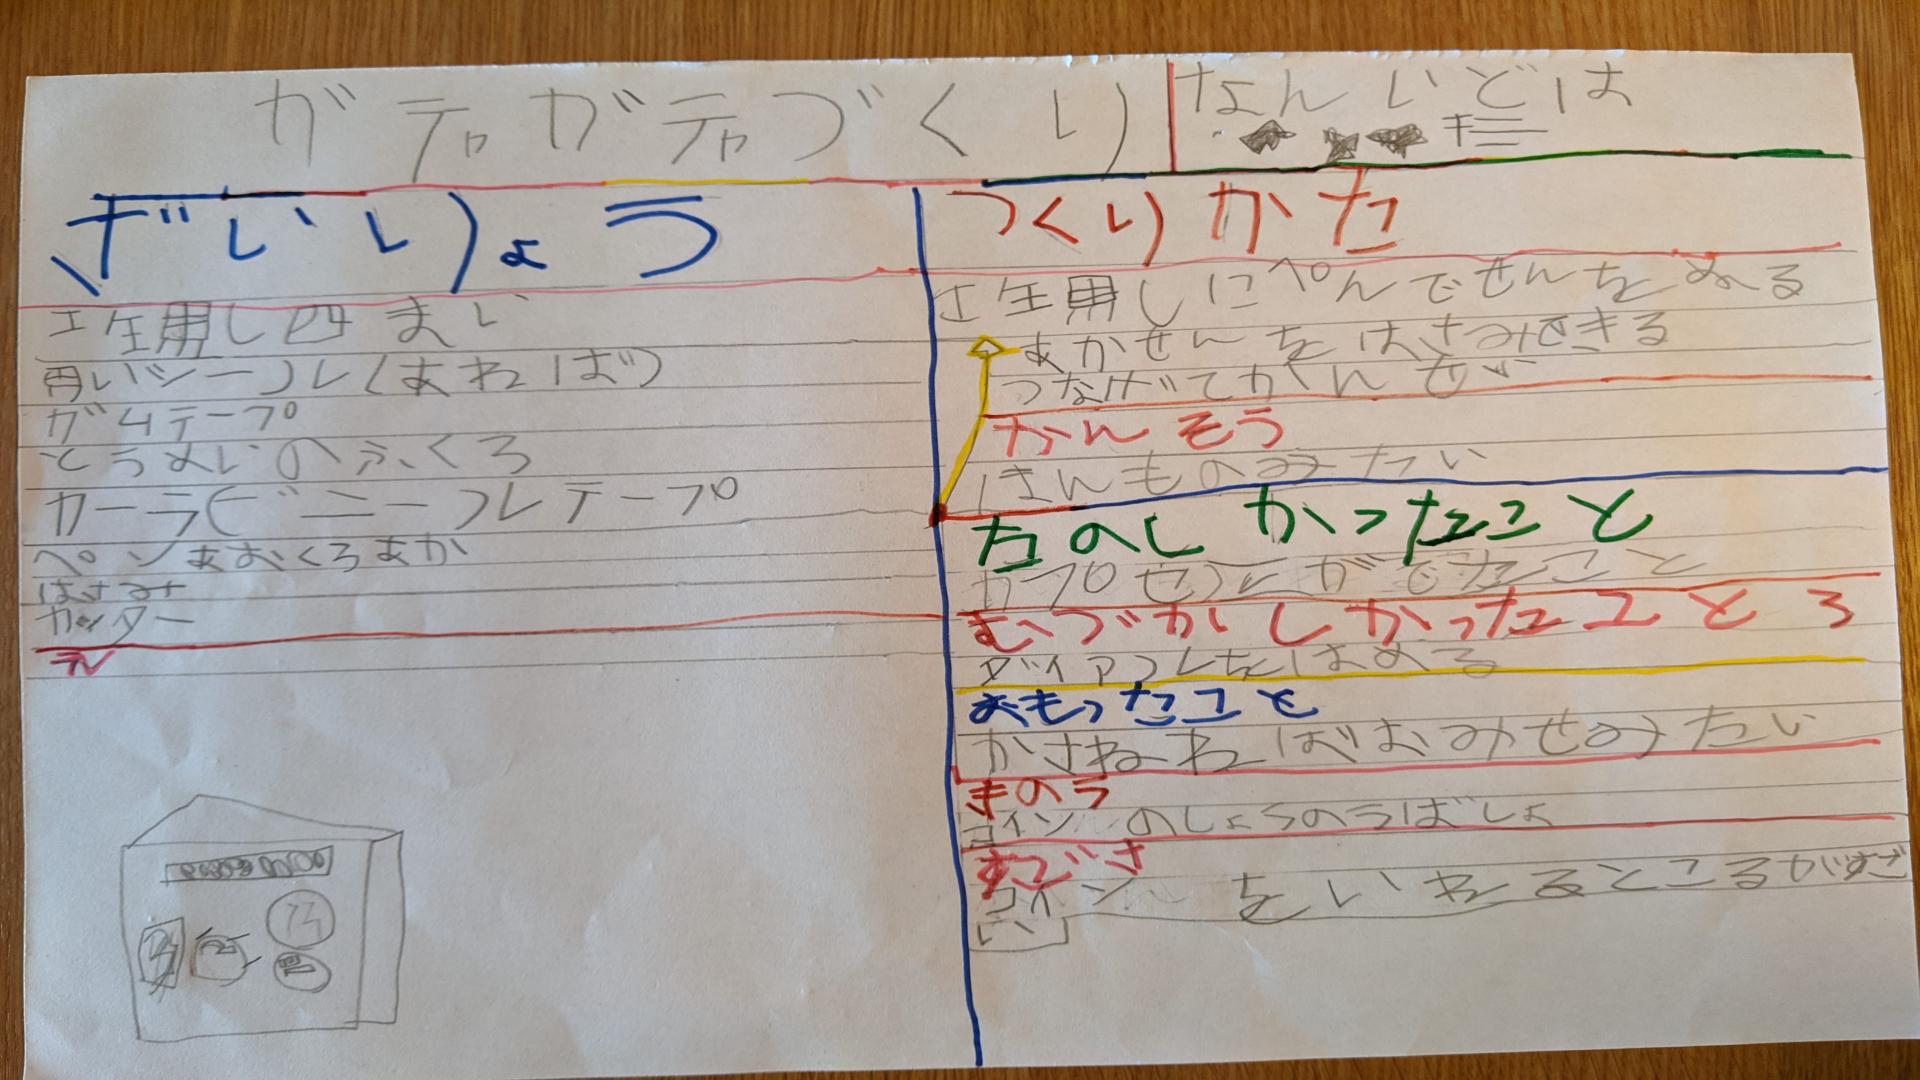 ガチャガチャづくり
なんいどは
ざいりょう
工生用し四まい
ガムテープ
とうめいのふくろ
ペンあおくろあか
はさみ
カッター
つくりかた
工生用しにぺんでせんをぬる
あかせんをはさみできる
かんそう
ほんものみたい
たのしかったこと
カプセルがでたこと
むづかしかったコところ
ダイアルをはめる
おもったコと
かさねればおみせみたい
きのう
コインのしょうのうばしょ
すごさ
コインをいれるところがすご
い